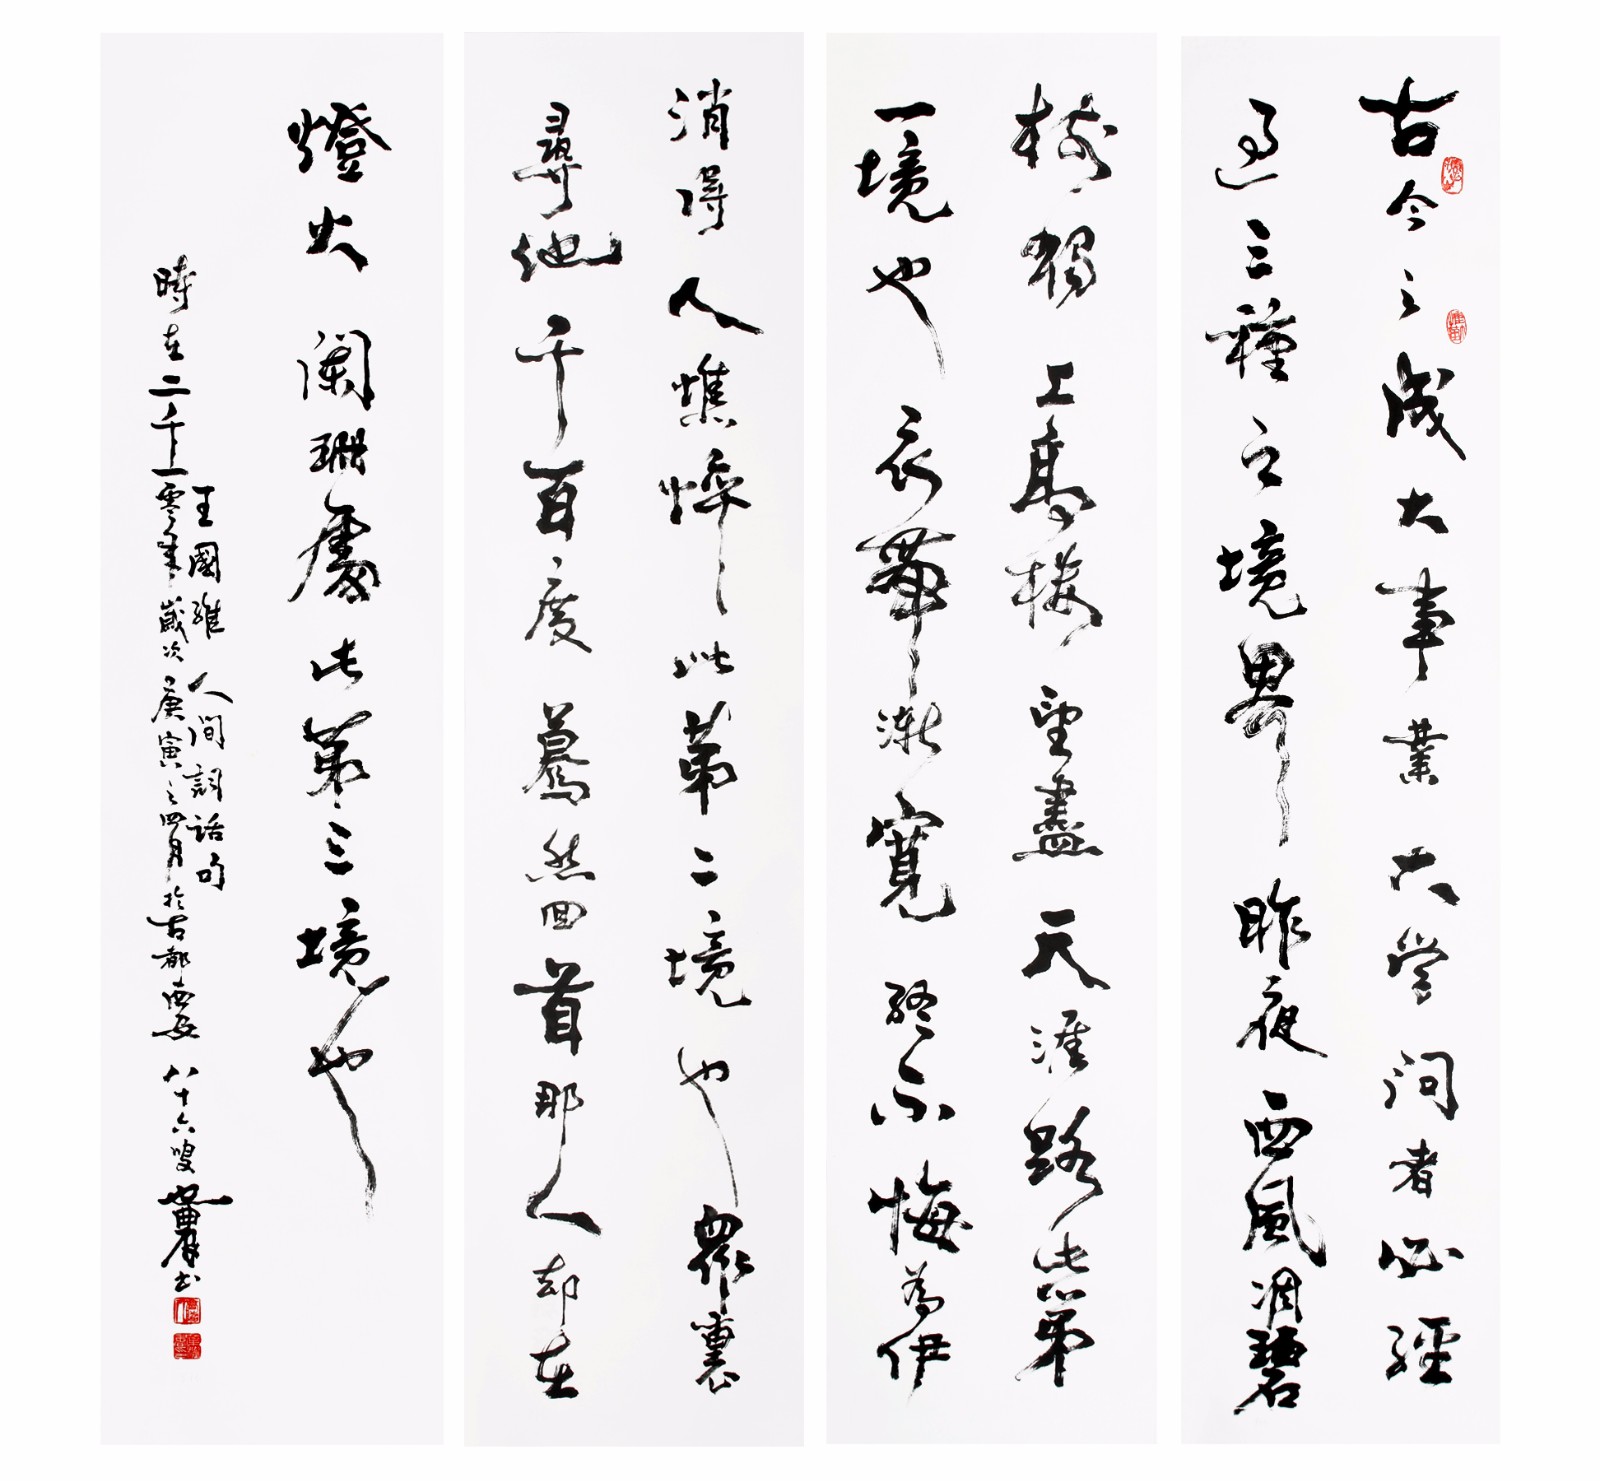 古今之成大事業大学問者必經
過三種之境界昨夜西風凋碧
樹獨上高樓望盡天涯路此第
一境也衣帶漸寬終不悔為伊
消得人憔悴此第二境也眾裏
尋他千百度驀然回首那人却在
燈火闌珊處此第三境也
王國維人間詞話句
時在二千一零年歲次庚寅之四月於古都西安八十六叟書